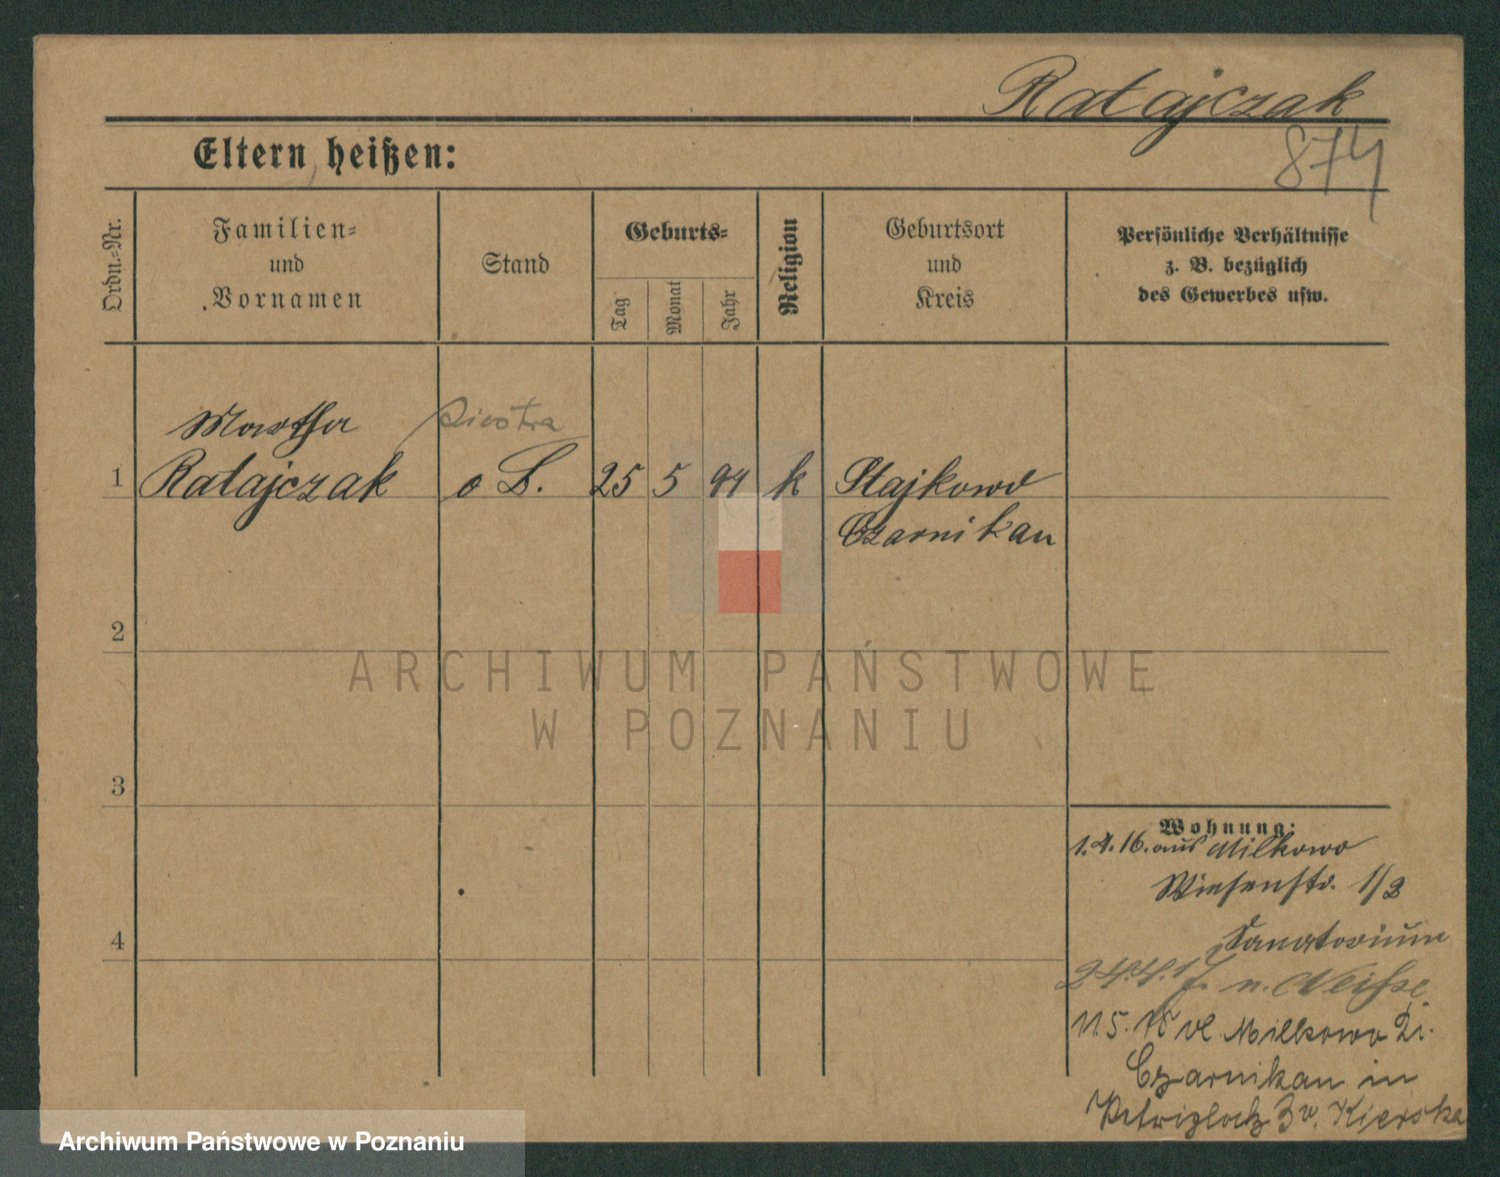 Ratajczak
874
Eltern heißen:
Ordn.-Nr.
Familien-
und
Vornamen
Stand
Geburts-
Tag
Monat
Jahr
Religion
Geburtsort
und
Kreis
Persönliche Verhältnisse
z. B. bezüglich
des Gewerbes usw.
Martha
siostra
1 Ratajczak o B. 25 5 94 k Stajkowo
Czarnikau
2
ARCHIWUM PAŃSTWOWE
W POZNANIU
3
Wohnung:
1.4.16. aus Milkowo
Wiesenstr. 1/2
Sanatorium
24.4.17. n. Neisse
11.5.18 Milkowo
Czarnikau in
3 Kierska
4
Archiwum Państwowe w Poznaniu